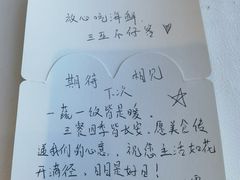 放心吃海鲜
三五不仔岁♡
期待 相见
下次
一蔬一饭皆是暖,
三餐四季皆长安,愿美仑传
递我们的心意,祝您生活如花
开满径,日日是好日!